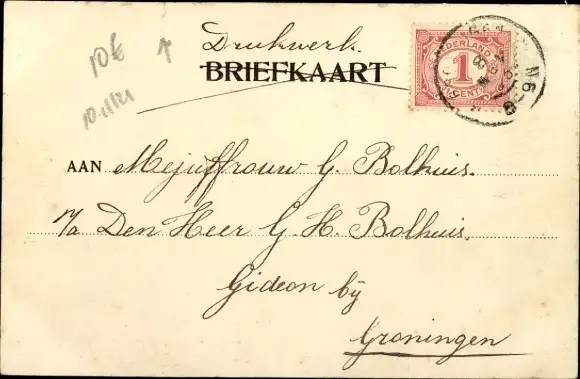 Drukwerk.
BRIEFKAART
10€
NEDERLAND
1
CENT
AAN Mejuffrouw G. Bolhuis.
p/a Den Heer G. H. Bolhuis.
Gideon bij
Groningen